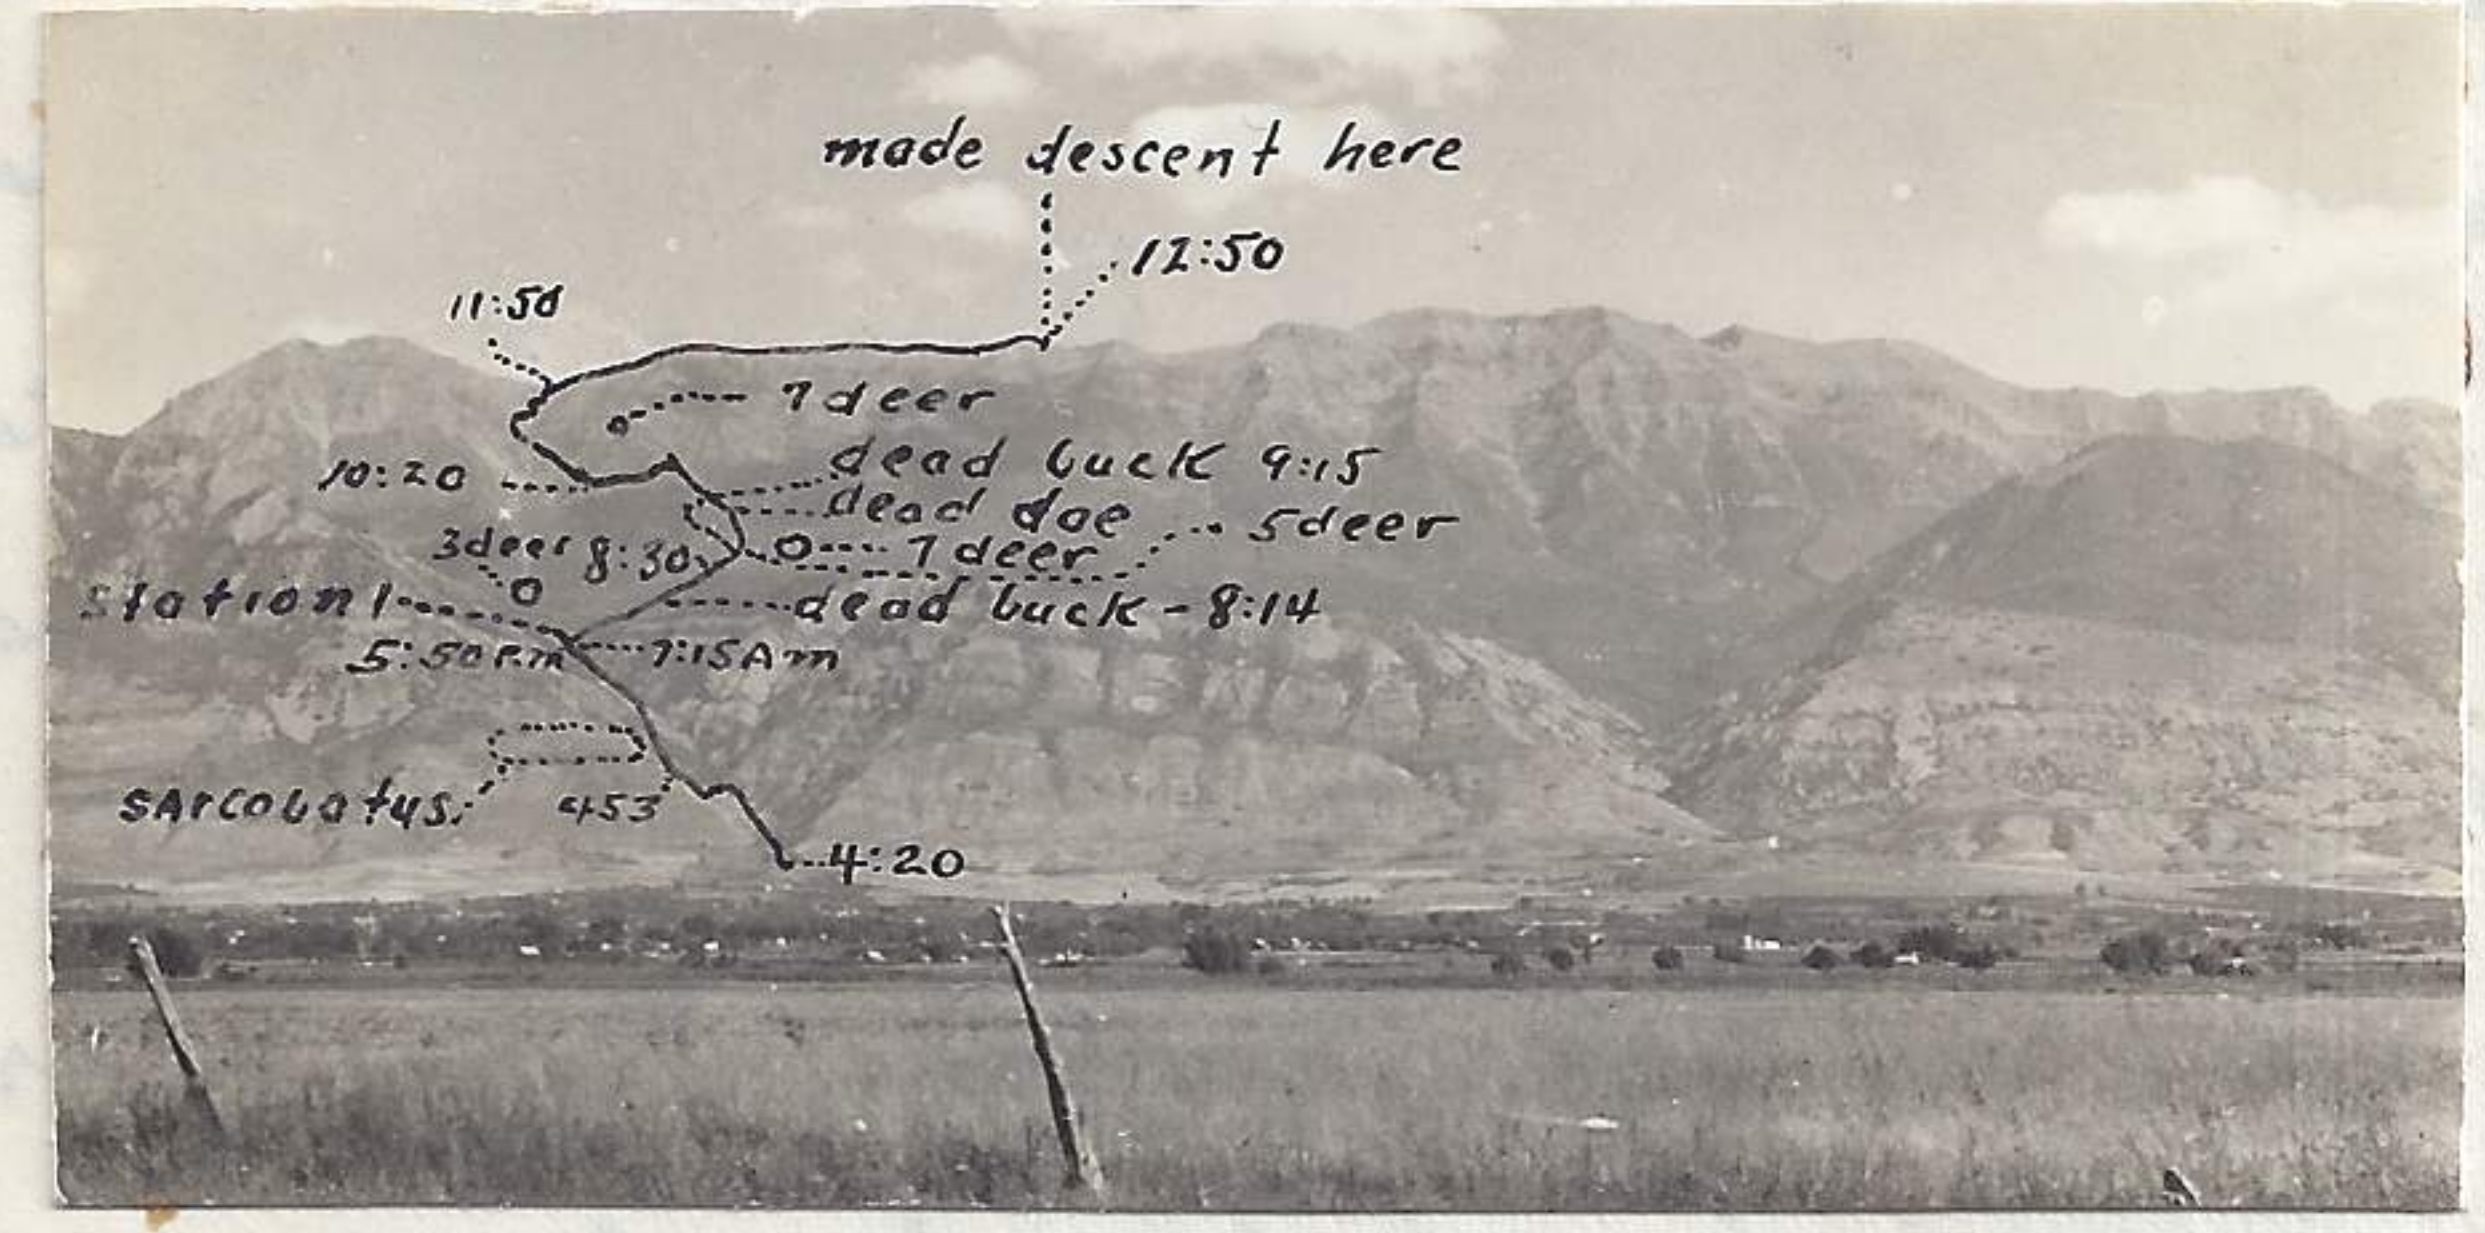 made descent here
12:50
11:50
7 deer
dead buck 9:15
10:20
dead doe
5 deer
3 deer 8:30
7 deer
station 1
dead buck - 8:14
5:50 P.m
7:15 Am
sarcobatus
453
4:20